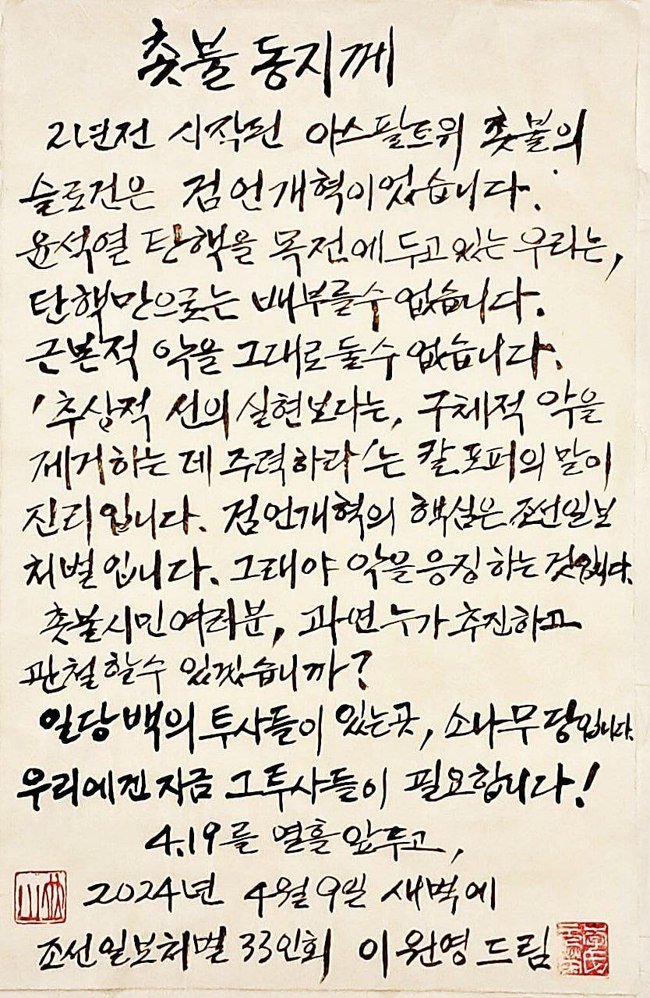 촛불 동지께
2년전 시작된 아스팔트위 촛불의
슬로건은 검언개혁이었습니다.
윤석열 탄핵을 목전에 두고 있는 우리는,
탄핵만으로는 배부를수 없습니다.
근본적 악을 그대로 둘수 없습니다.
'추상적 선의 실현보다는, 구체적 악을
제거하는 데 주력하라'는 칼 포퍼의 말이
진리입니다. 검언개혁의 핵심은 조선일보
처벌입니다. 그래야 악을 응징하는 것입니다.
촛불시민여러분, 과연 누가 추진하고
관철할수 있겠습니까?
일당백의 투사들이 있는곳, 소나무당입니다.
우리에겐 지금 그 투사들이 필요합니다!
4.19를 열흘 앞두고,
2024년 4월 9일 새벽에
조선일보처벌 33인회 이원영 드림